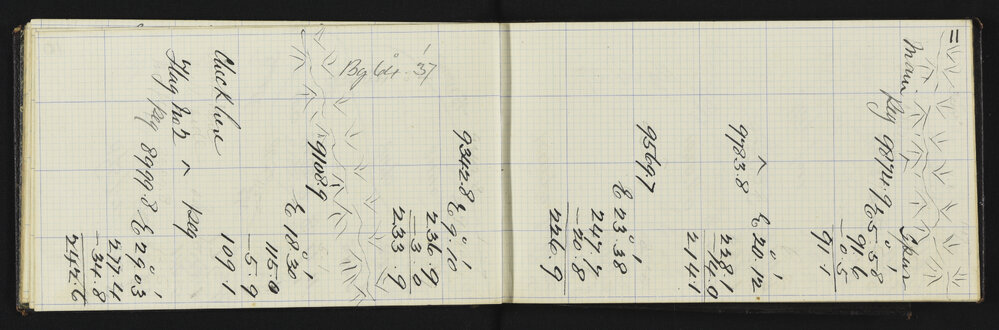 11
Main Spur
Peg 9874.9 E 5° 58'
91.6
-0.5
91.1
9783.8 E 20° 12'
228.1
-14.0
214.1
9569.7
E 23° 38'
247.7
-20.8
226.9
9342.8 E 9° 10'
236.9
-3.0
233.9
Bg 64° 37'
9108.9
E 18° 30'
115.0
-5.9
109.1
Check here
Flag No 2 ^ Peg
Peg 8999.8 E 29° 03'
277.4
-34.8
242.6